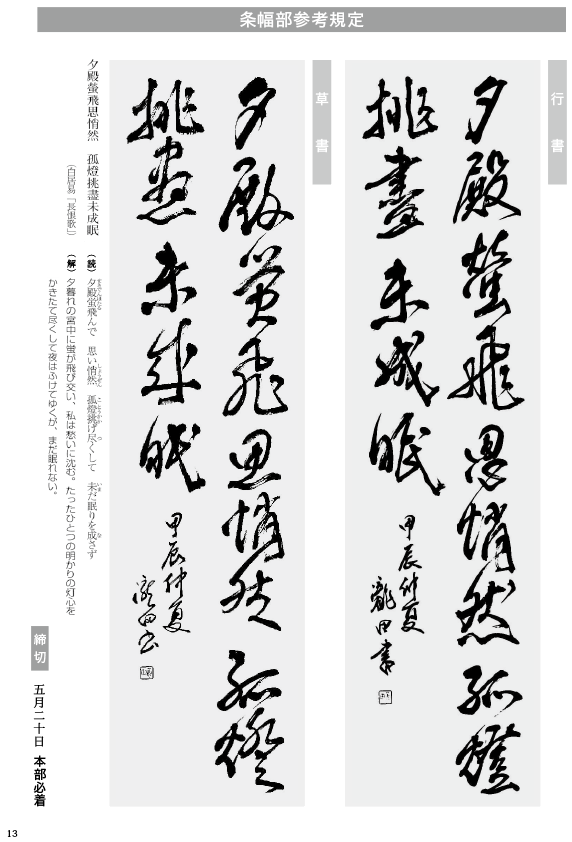 条幅部参考規定
行書
夕殿螢飛思悄然孤燈
挑盡未成眠
甲辰仲夏
龍田書
草書
夕殿螢飛思悄然孤燈
挑盡未成眠
甲辰仲夏
龍田書
夕殿螢飛思悄然　孤燈挑盡未成眠
（白居易『長恨歌』）
（読）夕殿螢飛んで　思い悄然　孤燈挑げ尽くして　未だ眠りを成さず
（解）夕暮れの宮中に蛍が飛び交い、私は愁いに沈む。たったひとつの明かりの灯心を
かきたて尽くして夜はふけてゆくが、まだ眠れない。
締切
五月二十日　本部必着
13